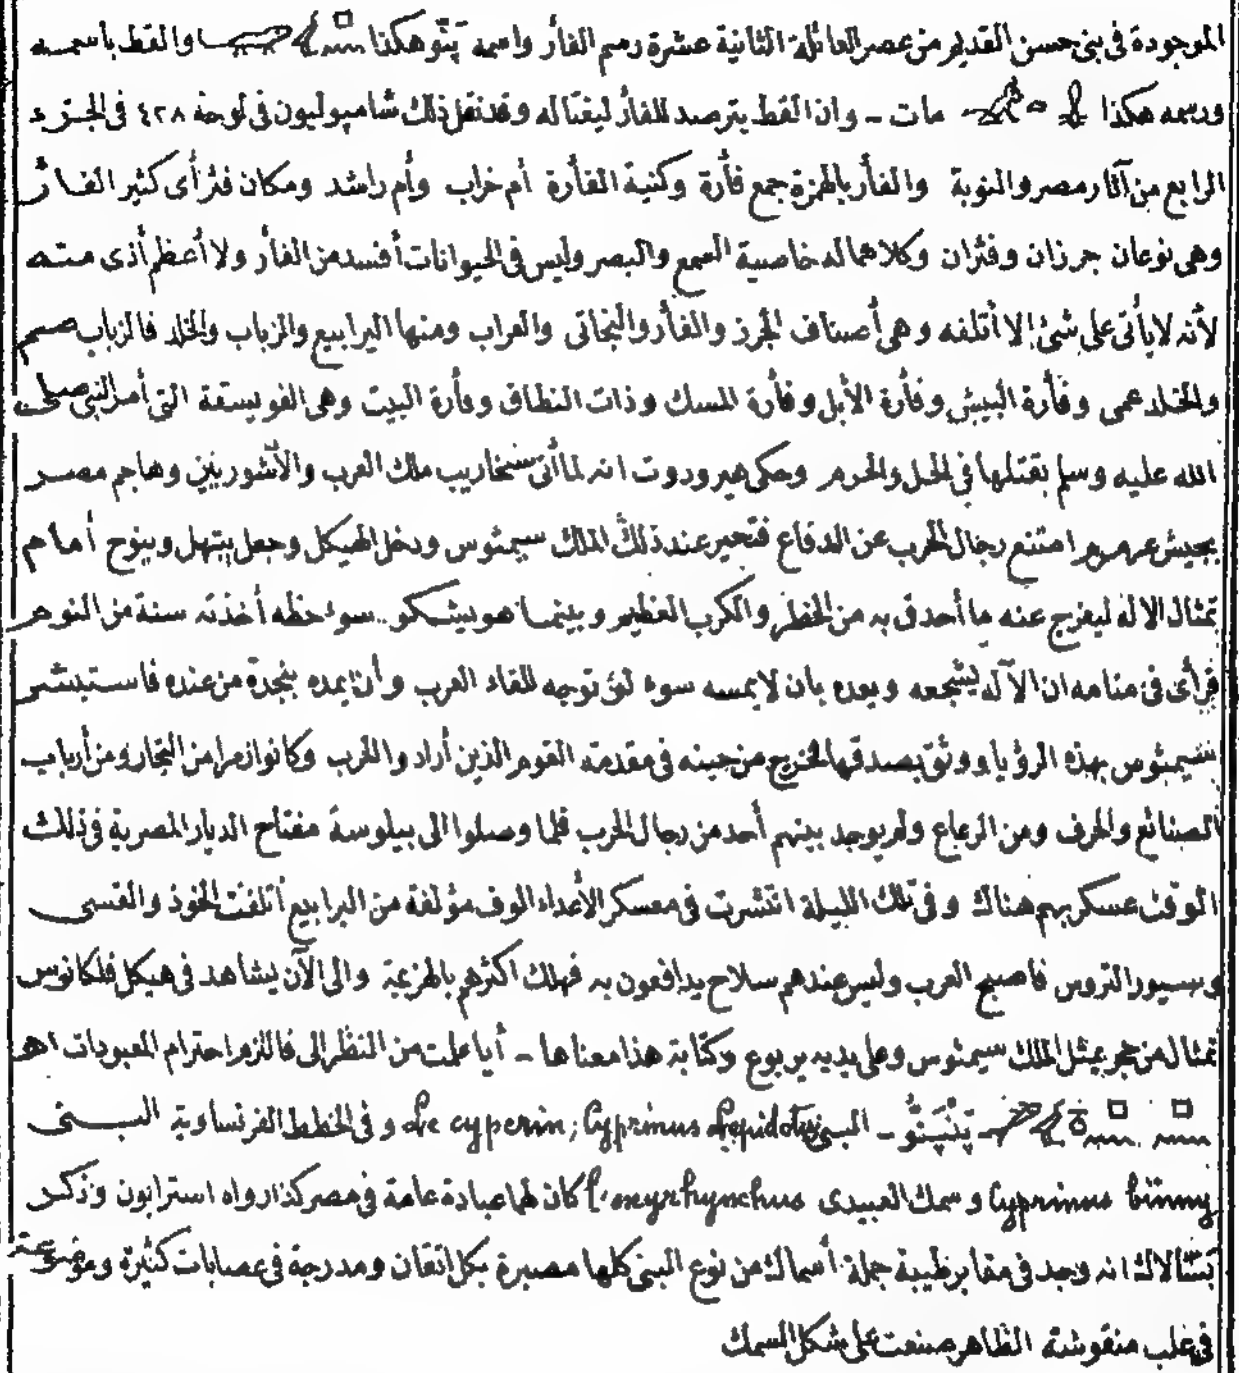 الموجودة فى بنى حسن القديم من عصر العائلة الثانية عشرة رسم الفأر واسمه پَنّو هكذا والقط باسمـــه
ورسمه هكذا مات ـ وان القط يترصد للفأر ليغتاله وقد نقل ذلك شامپوليون فى لوحة ٤٢٨ فى الجــزء
الرابع من آثار مصر والنوبة والفأر بالهمزة جمع فأرة وكنية الفأرة أم خراب وأم راشد ومكان فئر أى كثير الفــأر
وهى نوعان جرزان وفئران وكلاهما له خاصية السمع والبصر وليس فى الحيوانات أفسد من الفأر ولا أعظم أذى منــه
لأنه لا يأتى على شئ إلا أتلفه وهى أصناف الجرز والفأر والبجاتى والعراب ومنها اليرابيع والزباب والخلد فالزباب صــم
والخلد عمى وفأرة البيش وفأرة الأبل وفأرة المسك وذات النطاق وفأرة البيت وهى الفويسقة التى أمر النبى صلى
الله عليه وسلم بقتلها فى الحل والحرم وحكى هيرودوت انه لما أتى سنخاريب ملك العرب والآشوريين وهاجم مصــر
بجيش عرمرم امتنع رجال الحرب عن الدفاع فتحير عند ذلك الملك سيمثوس ودخل الهيكل وجعل يبتهل وينوح أمام
تمثال الاله ليفرج عنه ما أحدق به من الخطر والكرب العظيم وبينمــا هو يشــكو سوء حظه أخذته سنة من النوم
فرأى فى منامه ان الآله يشجعه ويعده بان لا يمسه سوء لو توجه للقاء العرب وأن يمده بنجدة من عنده فاســتبشــر
سيمثوس بهذه الرؤيا ووثق بصدقها فخرج من حينه فى مقدمة القوم الذين أرادوا الحرب وكانوا زمرا من التجار ومن أرباب
الصنائع والحرف ومن الرعاع ولم يوجد بينهم أحد من رجال الحرب فلما وصلوا الى بيلوسة مفتاح الديار المصرية فى ذلك
الوقت عسكر بهم هناك وفى تلك الليلة انتشرت فى معسكر الأعداء الوف مؤلفة من اليرابيع أتلفت الخوذ والقسى
وسيور التروس فاصبح العرب وليس عندهم سلاح يدافعون به فهلك اكثرهم بالهزيمة والى الآن يشاهد فى هيكل فلكانوس
تمثال من حجر يمثل الملك سيمثوس وعلى يديه يربوع وكتابة هذا معناها ـ أيا علمت من النظر الى فالتزم احترام المعبودات اهـ
ـ پَنْپَنُّو ـ البنى Le cyperin; Cyprinus Lepidotus وفى الخطط الفرنساوية البــنى
Cyprinus binny وسمك العبيدى L'oxyrhynchus كان لهما عبادة عامة فى مصر كذا رواه استرابون وذكــر
انه وجد فى مقابر طيبة جملة أسماك من نوع البنى كلها مصبرة بكل اتقان ومدرجة فى عصابات كثيرة وموضوعة
فى علب منقوشة الظاهر صنعت على شكل السمك